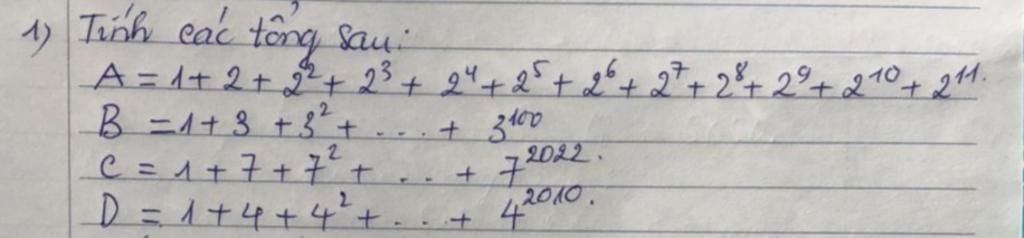 1) Tính các tổng sau:
A = 1 + 2 + 2² + 2³ + 2⁴ + 2⁵ + 2⁶ + 2⁷ + 2⁸ + 2⁹ + 2¹⁰ + 2¹¹.
B = 1 + 3 + 3² + ... + 3¹⁰⁰
C = 1 + 7 + 7² + ... + 7²⁰²².
D = 1 + 4 + 4² + ... + 4²⁰¹⁰.